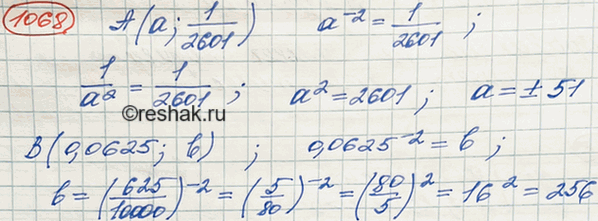 1068. A(a; 1/2601) a⁻² = 1/2601 ;
1/a² = 1/2601 ; a² = 2601 ; a = ± 51
©reshak.ru
B(0,0625; b) ; 0,0625⁻² = b ;
b = (625/10000)⁻² = (5/80)⁻² = (80/5)² = 16² = 256